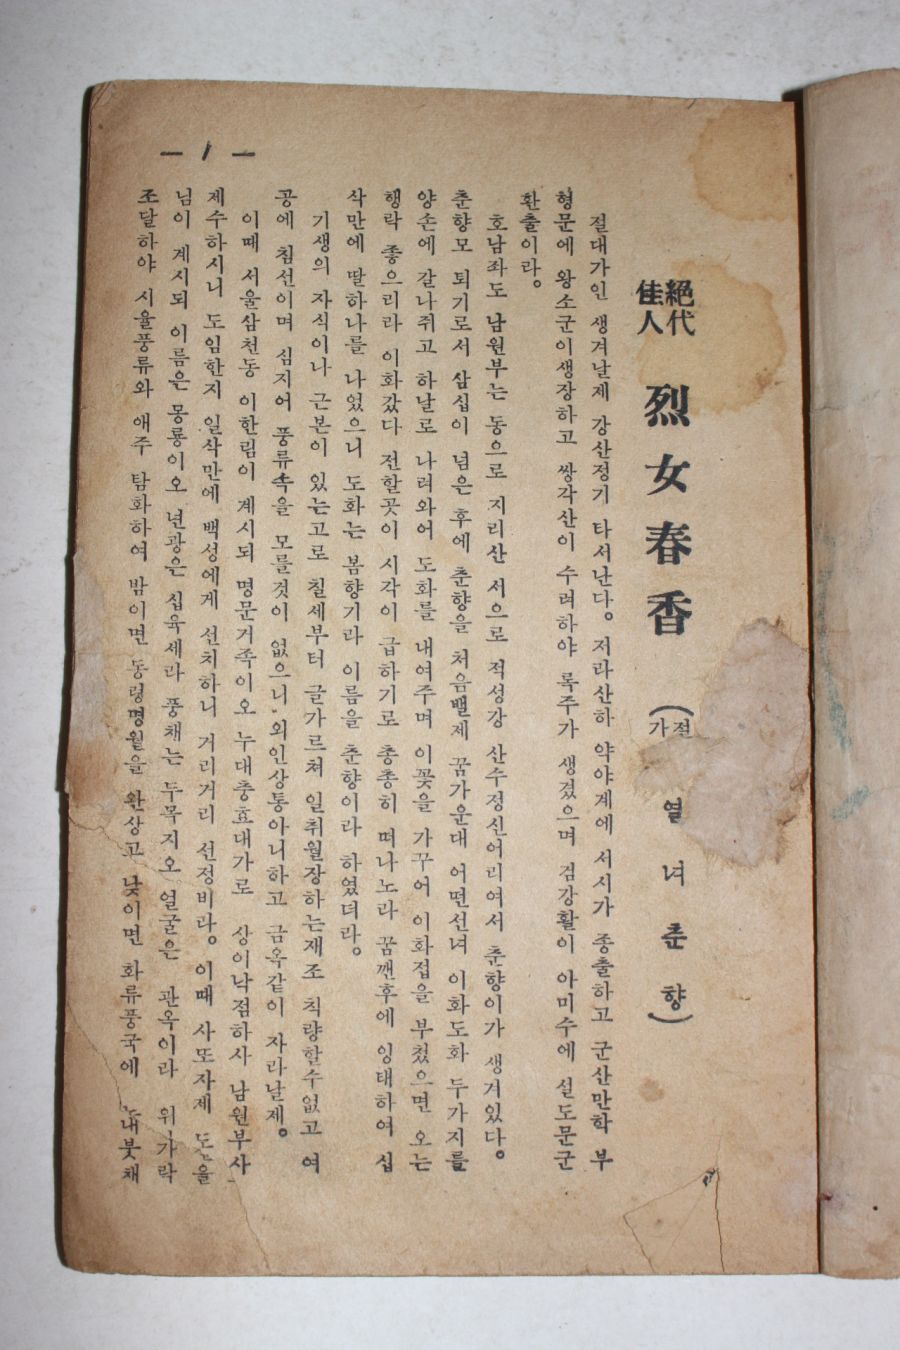 絕代佳人 烈女春香
열녀춘향)
절대가인 생겨날제 강산정기 타서난다。 저라산하 약야계에 서시가 종출하고 군산만학 부
형문에 왕소군이생장하고 쌍각산이 수려하야 록주가 생겼으며 검강활이 아미수에 설도문군
환출이라。
호남좌도 남원부는 동으로 지리산 서으로 적성강 산수정신어리여서 춘향이가 생겨있다。
춘향모 퇴기로서 삼십이 넘은후에 춘향을 처음밸제 꿈가운대 어떤선녀 이화도화 두가지를
양손에 갈나쥐고 하날로 나려와어 도화를 내여주며 이꽃을 가꾸어 이화접을 부쳤으면 오는
행락 좋으리라 이화갔다 전할곳이 시각이 급하기로 총총히 떠나노라 꿈깬후에 잉태하여 십
삭만에 딸하나를 나었으니 도화는 봄향기라 이름을 춘향이라 하였더라。
기생의 자식이나 근본이 있는고로 칠세부터 글가르쳐 일취월장하는재조 칙량할수없고 여
공에 침선이며 심지어 풍류속을 모를것이 없으니 외인상통아니하고 금옥같이 자라날제。
이때 서울삼천동 이한림이 계시되 명문거족이오 누대충효대가로 상이낙점하사 남원부사
제수하시니 도임한지 일삭만에 백성에게 선치하니 거리거리 선정비라。 이때 사또자제 도
님이 계시되 이름은 몽룡이오 년광은 십육세라 풍채는 두목지오 얼굴은 관옥이라 위 가락
조달하야 시율풍류와 애주 탐화하여 밤이면 동령명월을 완상고 낮이면 화류풍국에 내붓채
— 1 —